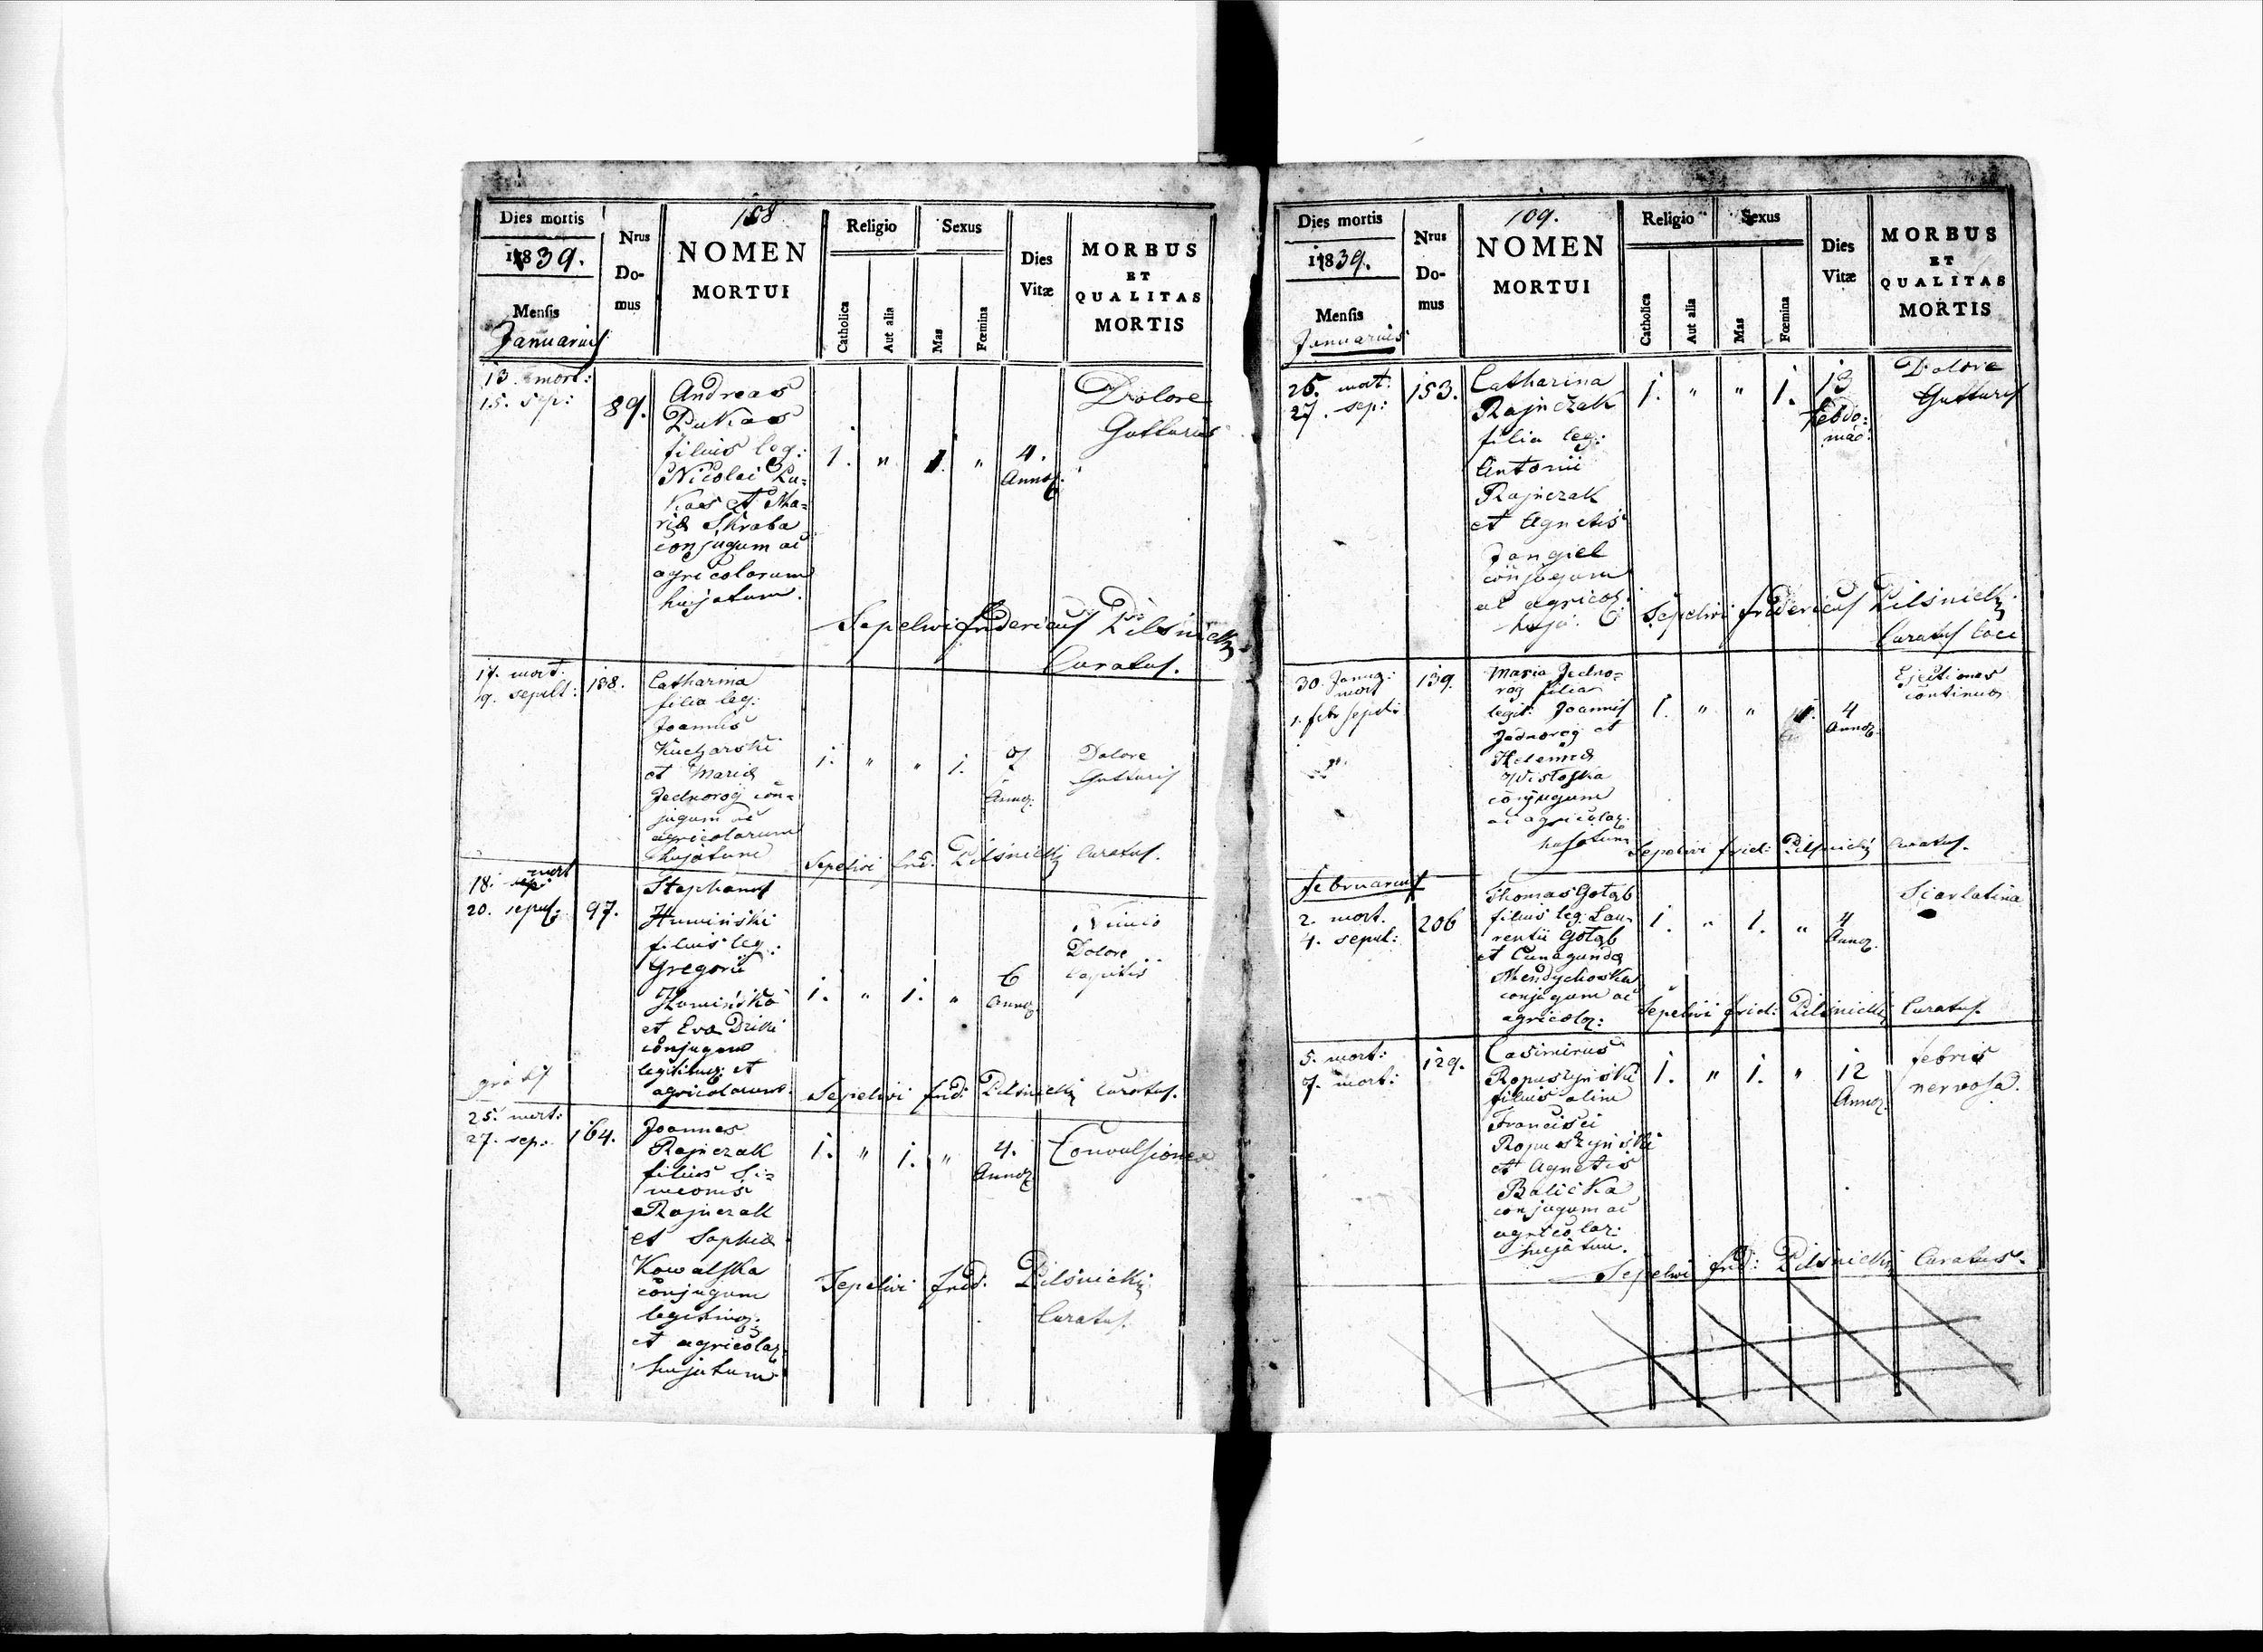 108
Dies mortis
1839.
Mensis
Januarius
Nrus
Do-
mus
NOMEN
MORTUI
Religio
Catholica
Aut alia
Sexus
Mas
Fœmina
Dies
Vitæ
MORBUS
ET
QUALITAS
MORTIS
13. mort:
15. sep:
89.
Andreas
Lukas
filius leg:
Nicolai Lu-
kas et Ma-
riæ Skraba
conjugum ac
agricolarum
hujatum.
1. " 1. "
4.
Annor.
Dolore
Gutturis
Sepelivi Fridericus Pilsnicki
Curatus.
17. mort.
19. sepult:
138.
Catharina
filia leg:
Joannis
Kucharski
et Mariæ
Jednorog con-
jugum ac
agricolarum
hujatum
1. " " 1.
7
Annor.
Dolore
Gutturis
Sepelivi frid: Pilsnicki Curatus.
18. mort
20. sepul:
97.
Stephanus
Humiński
filius leg:
Gregorii
Humiński
et Eva Dziki
conjugum
legitimor: et
agricolarum.
1. " 1. "
6
Annor.
Nimio
Dolore
capitis
Sepelivi frid: Pilsnicki Curatus.
25. mort:
27. sep:
164.
Joannes
Rajczak
filius Si-
meonis
Rajczak
et Sophiæ
Kowalska
conjugum
legitimor:
et agricolar.
hujatum
1. " 1. "
4.
Annor.
Convulsiones
Sepelivi frid: Pilsnicki
Curatus.
109.
Dies mortis
1839.
Mensis
Januarius
Nrus
Do-
mus
NOMEN
MORTUI
Religio
Catholica
Aut alia
Sexus
Mas
Fœmina
Dies
Vitæ
MORBUS
ET
QUALITAS
MORTIS
25. mort:
27. sep:
153.
Catharina
Rajczak
filia leg:
Antonii
Rajczak
et Agnetis
Dangiel
conjugum
ac agricol.
huja:
1. " " 1.
13
hebdo-
mad:
Dolore
Gutturis
Sepelivi fridericus Pilsnicki
Curatus loci
30. Januar:
mort
1. febr sepul:
139.
Maria Jedno-
rog filia
legit: Joannis
Jednorog et
Helenæ
Wistoska
conjugum
ac agricolar:
hujatum
1. " " 1.
4
Annor.
Ejetiones
continuo
Sepelivi frid: Pilsnicki Curatus.
februarius
2. mort.
4. sepul:
206
Thomas Gołąb
filius leg: Lau-
rentii Gołąb
et Cunegundæ
Mendychowska
conjugum ac
agricolar:
1. " 1. "
4
Annor.
Scarlatina
Sepelivi frid: Pilsnicki Curatus.
5. mort:
7. mort:
129.
Casimirus
Ropuszyński
filius olim
Francisci
Ropuszyński
et Agnetis
Balicka
conjugum ac
agricolar:
hujatum.
1. " 1. "
12
Annor.
febris
nervosa.
Sepelivi frid: Pilsnicki Curatus.